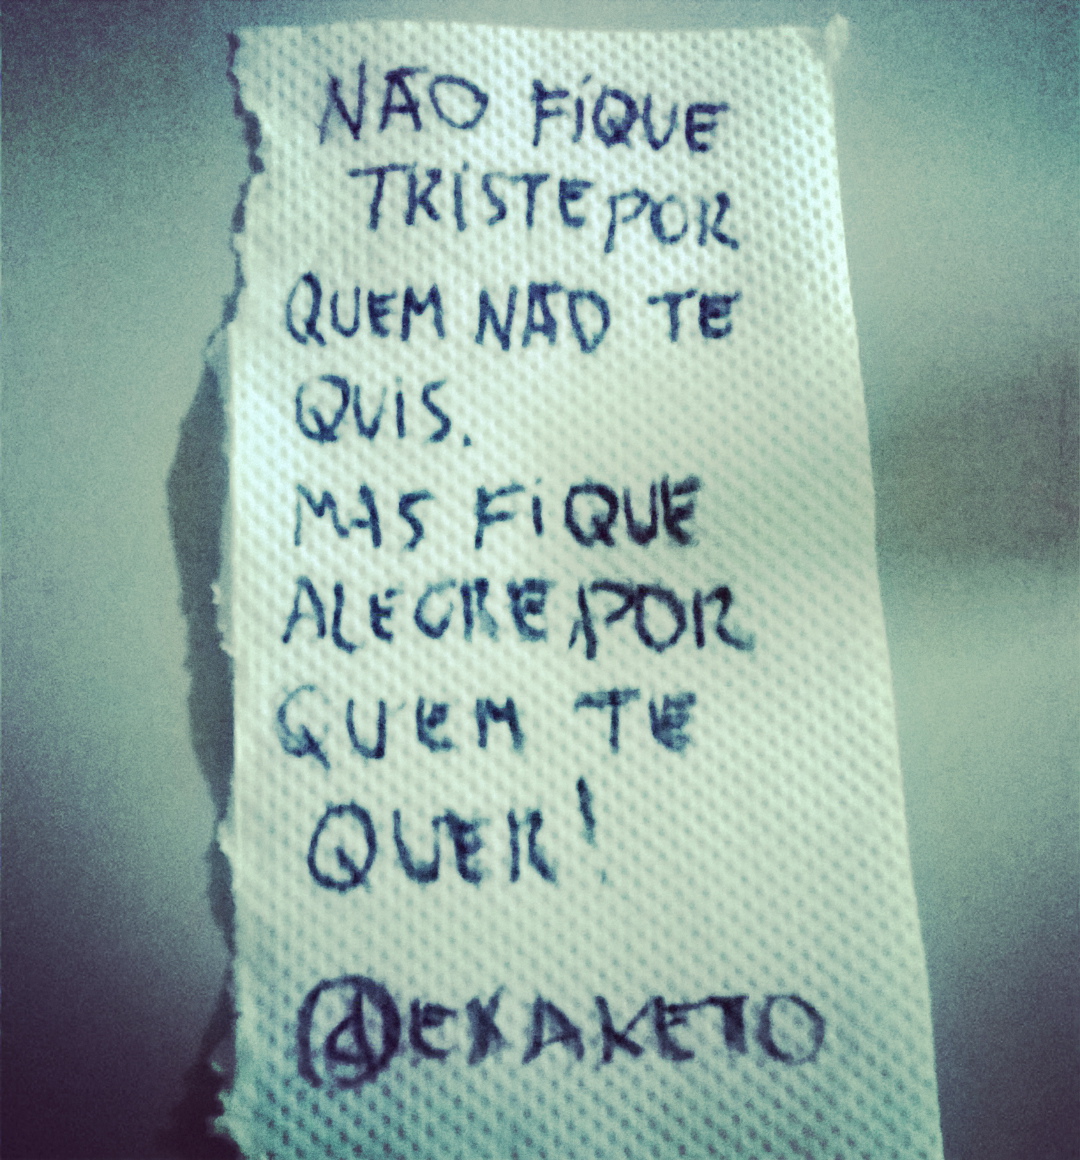 NÃO FIQUE
TRISTE POR
QUEM NÃO TE
QUIS.
MAS FIQUE
ALEGRE POR
QUEM TE
QUER!
@EXAKETO